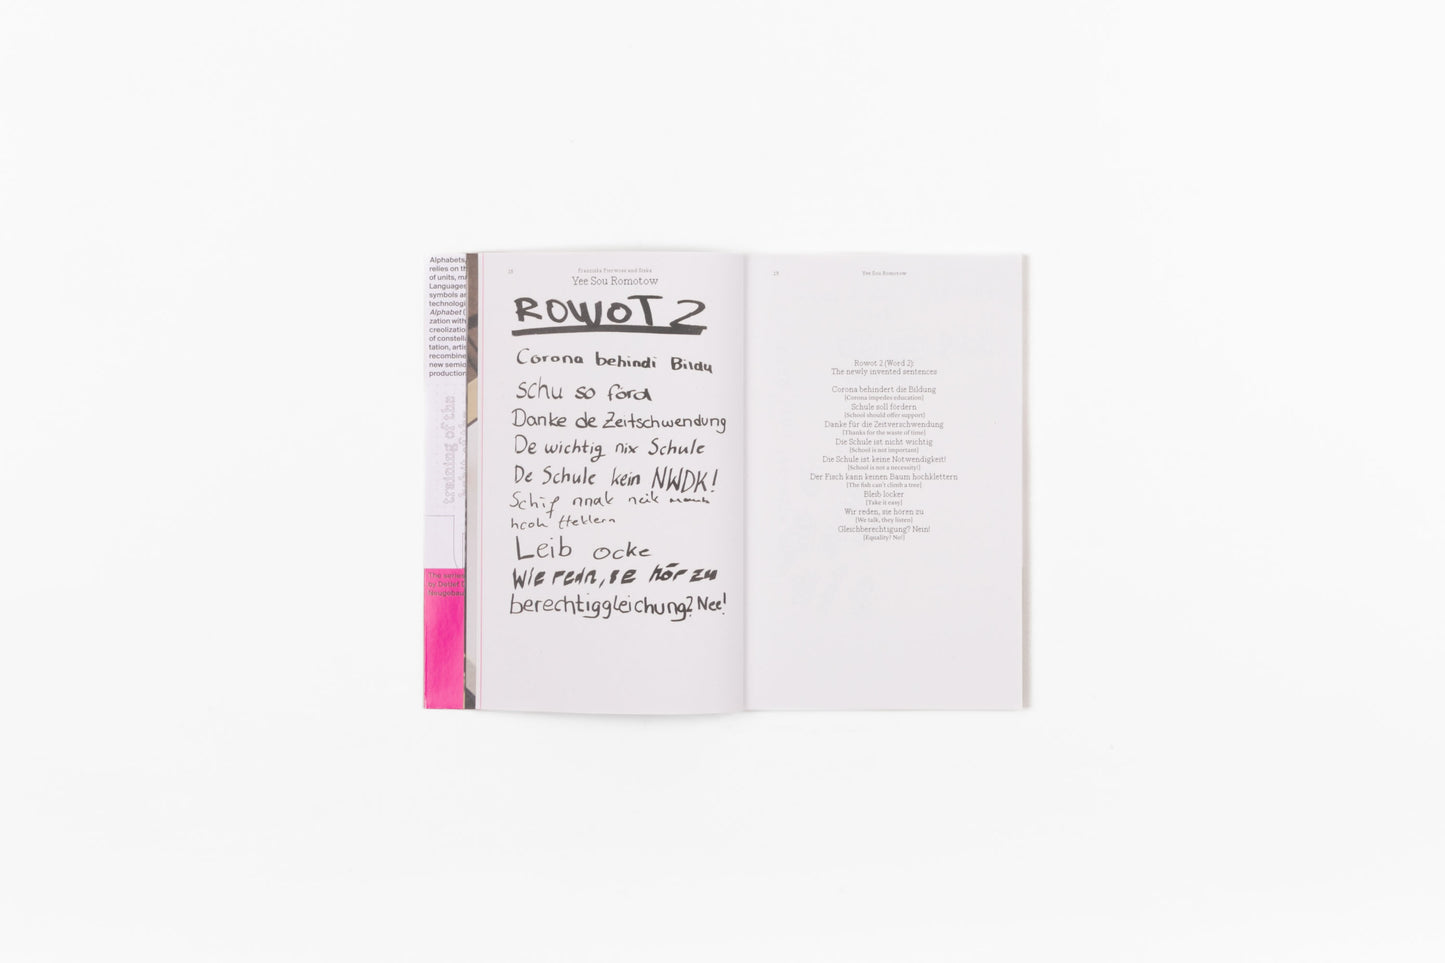 Alphabets,
relies on th
of units, ma
Languages
symbols an
technologi
Alphabet (
zation with
creolizatio
of constell
tation, artis
recombine
new semio
production
training of the
The series
by Detlef D
Neugebau
18
Franziska Pierwoss and Siska
Yee Sou Romotow
ROWOT 2
Corona behindi Bildu
schu so förd
Danke de Zeitschwendung
De wichtig nix Schule
De Schule kein NWDK!
Schif nnak neik
hcoh
Leib ocke
Wie redn, se hör zu
berechtiggleichung? Nee!
19
Yee Sou Romotow
Rowot 2 (Word 2):
The newly invented sentences
Corona behindert die Bildung
[Corona impedes education]
Schule soll fördern
[School should offer support]
Danke für die Zeitverschwendung
[Thanks for the waste of time]
Die Schule ist nicht wichtig
[School is not important]
Die Schule ist keine Notwendigkeit!
[School is not a necessity!]
Der Fisch kann keinen Baum hochklettern
[The fish can't climb a tree]
Bleib locker
[Take it easy]
Wir reden, sie hören zu
[We talk, they listen]
Gleichberechtigung? Nein!
[Equality? No!]